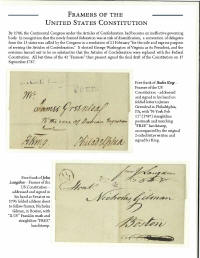 FRAMERS OF THE
UNITED STATES CONSTITUTION
By 1786, the Continental Congress under the Articles of Confederation had become an ineffective governing
body. In recognition that the newly formed federation was at risk of disintegration, a convention of delegates
from the 13 states was called by the Congress in a resolution of 21 February "for the sole and express purpose
of revising the Articles of Confederation." It elected George Washington of Virginia as its President, and the
revisions turned out to be so substantial that the Articles of Confederation were replaced with the Federal
Constitution. All but three of the 42 "Framers" then present signed the final draft of the Constitution on 17
September 1787.
Free frank of Rufus King –
Framer of the US
Constitution – addressed
and signed in his hand on
folded letter to James
Greenleaf in Philadelphia,
PA, with "N-York
straightline
postmark and matching
"FREE" handstamp,
accompanied by the original
letter written and
signed by King.
Mr
James Greenleaf
Philadelphia
Free frank of John
Langdon – Framer of the
US Constitution –
addressed and signed in
his hand as Senator on
1796 folded address sheet
to fellow framer, Nicholas
Gilman, in Boston, with
straightline
"FREE"
handstamp.
Nicholas Gilman
Boston